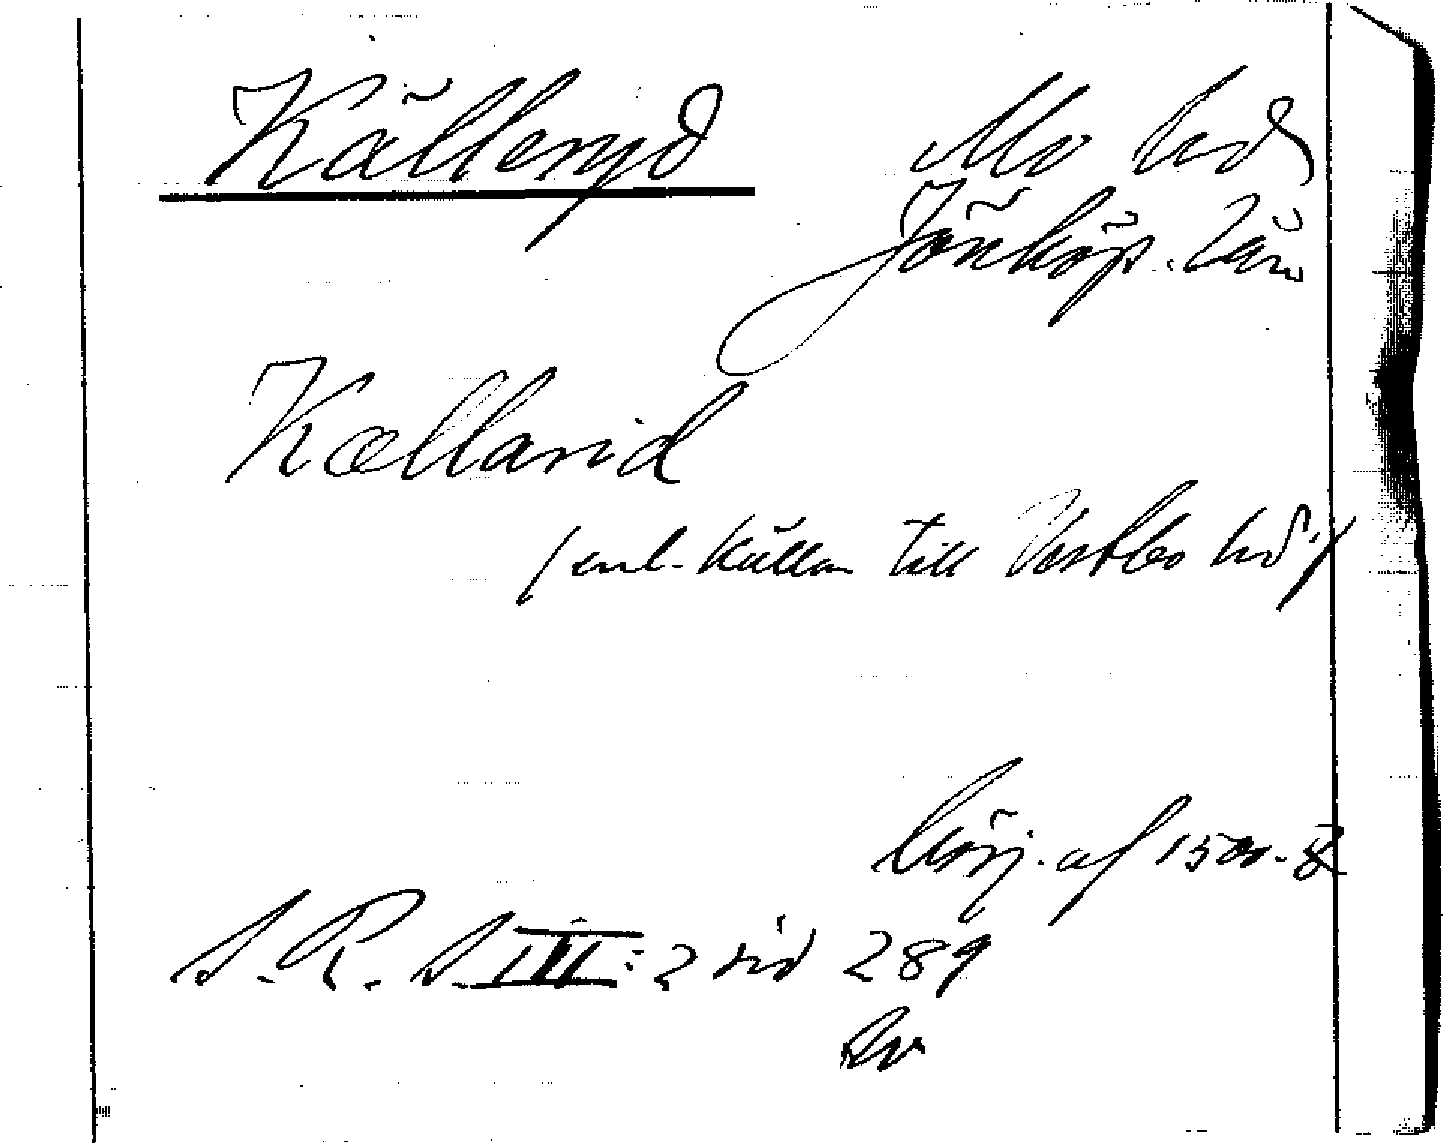 Källeryd Mo hd
Jönköp. Län
Kællarid
/enl. källan till Västbo hd/
börj. af 1500-t
S. R. S. III: 2 sid 289